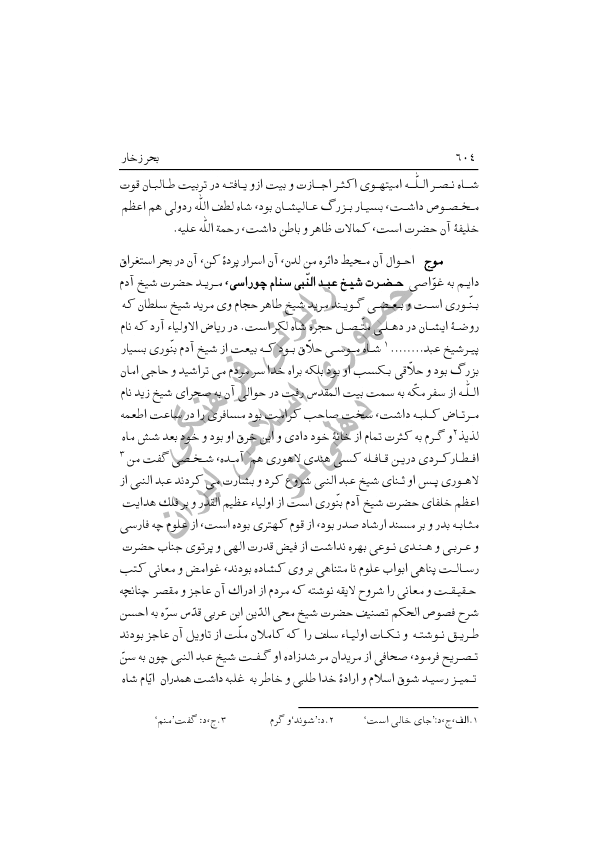 ۶۰۴ بحر زخار
شاه نصر اللّٰه امیتهوی اکثر اجازت و بیت ازو یافته در تربیت طالبان قوت
مخصوص داشت، بسیار بزرگ عالیشان بود، شاه لطف اللّٰه ردولی هم اعظم
خلیفۀ آن حضرت است، کمالات ظاهر و باطن داشت، رحمة اللّٰه علیه.
موج احوال آن محیط دائره من لدن، آن اسرار پردۀ کن، آن در بحر استغراق
دایم به غوّاصی حضرت شیخ عبد النّبی سنام چوراسی، مرید حضرت شیخ آدم
بنّوری است و بعضی گویند مرید شیخ طاهر حجام وی مرید شیخ سلطان که
روضۀ ایشان در دهلی متّصل حجره شاه لکر است. در ریاض الاولیاء آرد که نام
پیر شیخ عبد........۱ شاه موسی حلّاق بود که بیعت از شیخ آدم بنّوری بسیار
بزرگ بود و حلّاقی بکسب او بود بلکه براه خدا سر مردم می تراشید و حاجی امان
اللّٰه از سفر مکّه به سمت بیت المقدس رفت در حوالی آن به صحرای شیخ زید نام
مرتاض کلبه داشت، سخت صاحب کرامت بود مسافری را در ساعت اطعمه
لذیذ۲و گرم به کثرت تمام از خانۀ خود دادی و این خرق او بود و خود بعد شش ماه
افطار کردی درین قافله کسی هندی لاهوری هم آمده، شخصی گفت من۳
لاهوری پس او ثنای شیخ عبد النبی شروع کرد و بشارت می کردند عبد النبی از
اعظم خلفای حضرت شیخ آدم بنّوری است از اولیاء عظیم القدر و بر فلك هدایت
مثابه بدر و بر مسند ارشاد صدر بود، از قوم کهتری بوده است، از علوم چه فارسی
و عربی و هندی نوعی بهره نداشت از فیض قدرت الهی و پرتوی جناب حضرت
رسالت پناهی ابواب علوم نا متناهی بر وی کشاده بودند، غوامض و معانی کتب
حقیقت و معانی را شروح لایقه نوشته که مردم از ادراك آن عاجز و مقصر چنانچه
شرح فصوص الحکم تصنیف حضرت شیخ محی الدّین ابن عربی قدّس سرّه به احسن
طریق نوشته و نکات اولیاء سلف را که کاملان ملّت از تاویل آن عاجز بودند
تصریح فرمود، صحافی از مریدان مرشدزاده او گفت شیخ عبد النبی چون به سنّ
تمیز رسید شوق اسلام و ارادۀ خدا طلبی و خاطر به غلبه داشت همدران ایّام شاه
۱.الف،ج،د:'جای خالی است' ۲.د:'شوند'و گرم ۳.ج،د: گفت'منم'
رایزنی فرهنگی
جمهوری اسلامی ایران
دهلی نو